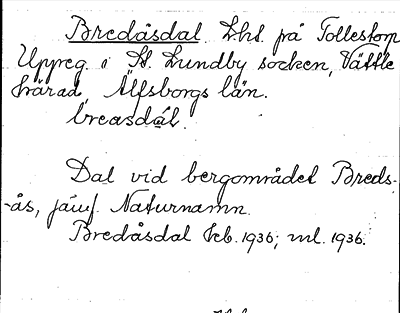 Bredåsdal. Lht. på Tollestorp
Uppreg. i St. Lundby socken, Vättle
härad, Älfsborgs län.
breasdál.
Dal vid bergområdet Breds-
-ås, jämf. Naturnamn.
Bredåsdal Jeb. 1936; ml. 1936.